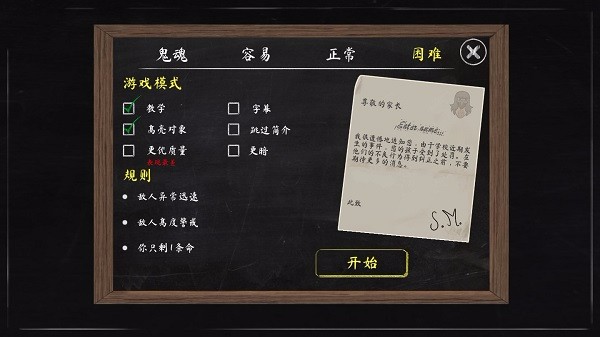 鬼魂 容易 正常 困难
游戏模式
教学 字幕
高亮对象 跳过简介
更优质量 更暗
规则
敌人异常迅速
敌人高度警戒
你只剩1条命
尊敬的家长
我很遗憾地通知您，由于学校近期发
生的事件，您的孩子受到了处罚。在
他们的不良行为得到纠正之前，不要
期待更多的消息。
此致
S.M.
开始